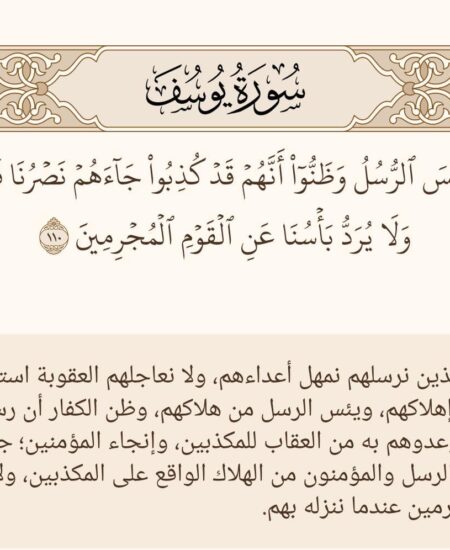 سُورَةُ يُوسُفَ
ٱلرُّسُلُ وَظَنُّوٓاْ أَنَّهُمۡ قَدۡ كُذِبُواْ جَآءَهُمۡ نَصۡرُنَا
وَلَا يُرَدُّ بَأۡسُنَا عَنِ ٱلۡقَوۡمِ ٱلۡمُجۡرِمِينَ ١١٠
نرسلهم نمهل أعداءهم، ولا نعاجلهم العقوبة
إهلاكهم، ويئس الرسل من هلاكهم، وظن الكفار أن
به من العقاب للمكذبين، وإنجاء المؤمنين؛
الرسل والمؤمنون من الهلاك الواقع على المكذبين،
عندما ننزله بهم.